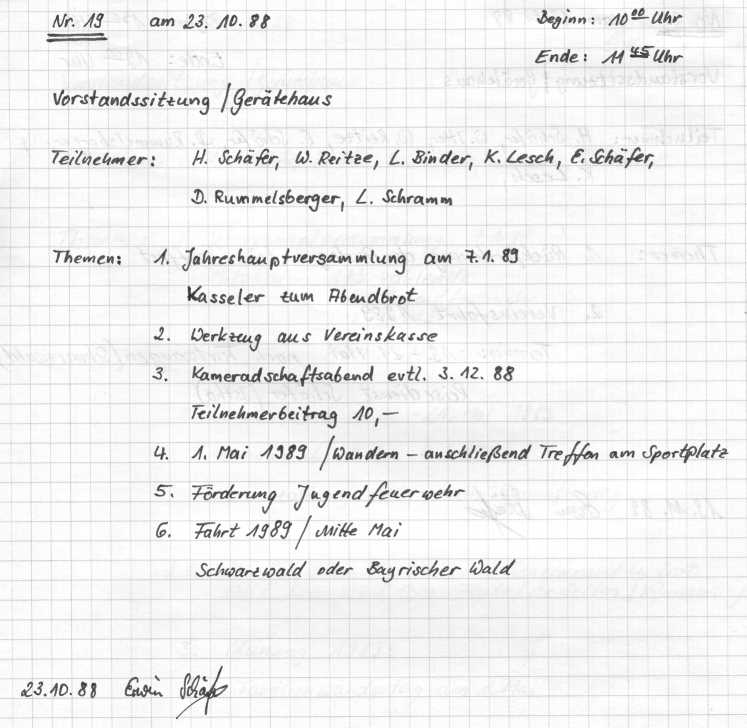 Nr. 19 am 23.10.88 Beginn: 10⁰⁰ Uhr
Ende: 11⁴⁵ Uhr
Vorstandssitzung / Gerätehaus
Teilnehmer: H. Schäfer, W. Reitze, L. Binder, K. Lesch, E. Schäfer,
D. Rummelsberger, L. Schramm
Themen: 1. Jahreshauptversammlung am 7.1.89
Kasseler zum Abendbrot
2. Werkzeug aus Vereinskasse
3. Kameradschaftsabend evtl. 3.12.88
Teilnehmerbeitrag 10,—
4. 1. Mai 1989 / Wandern – anschließend Treffen am Sportplatz
5. Förderung Jugendfeuerwehr
6. Fahrt 1989 / Mitte Mai
Schwarzwald oder Bayrischer Wald
23.10.88 Erwin Schäfer